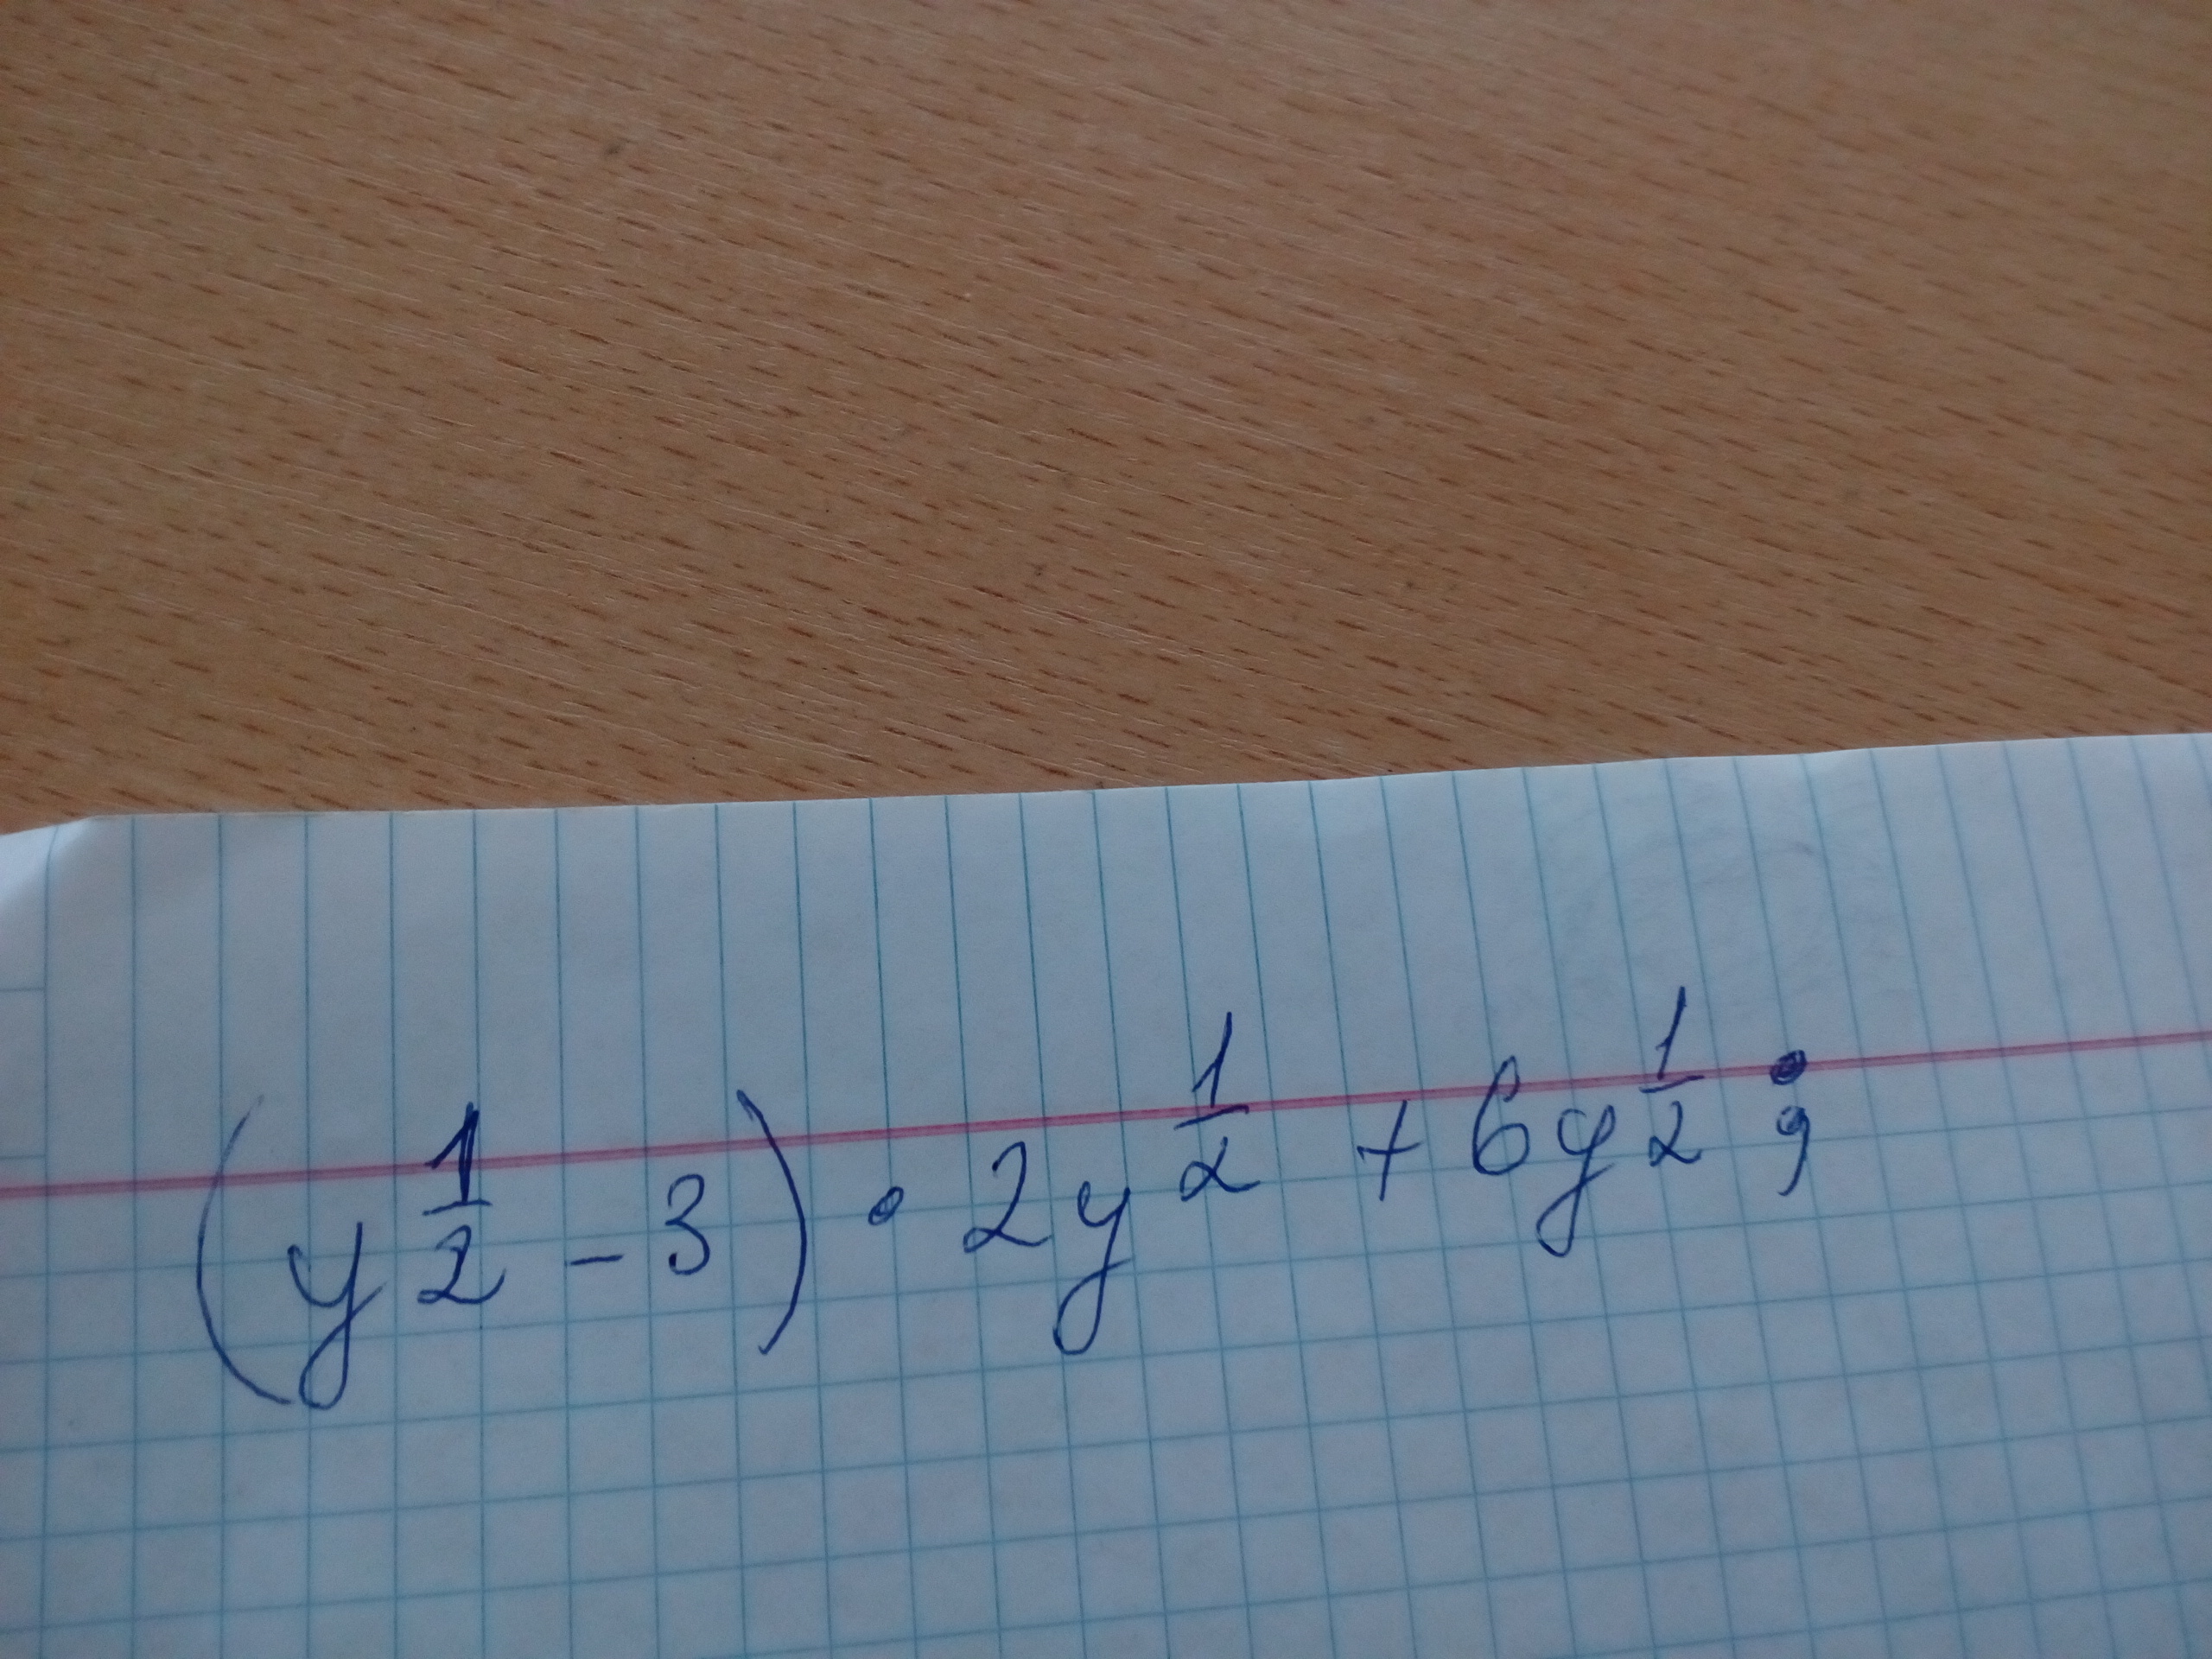 (y^{\frac{1}{2}} - 3) • 2y^{\frac{1}{2}} + 6y^{\frac{1}{2}};